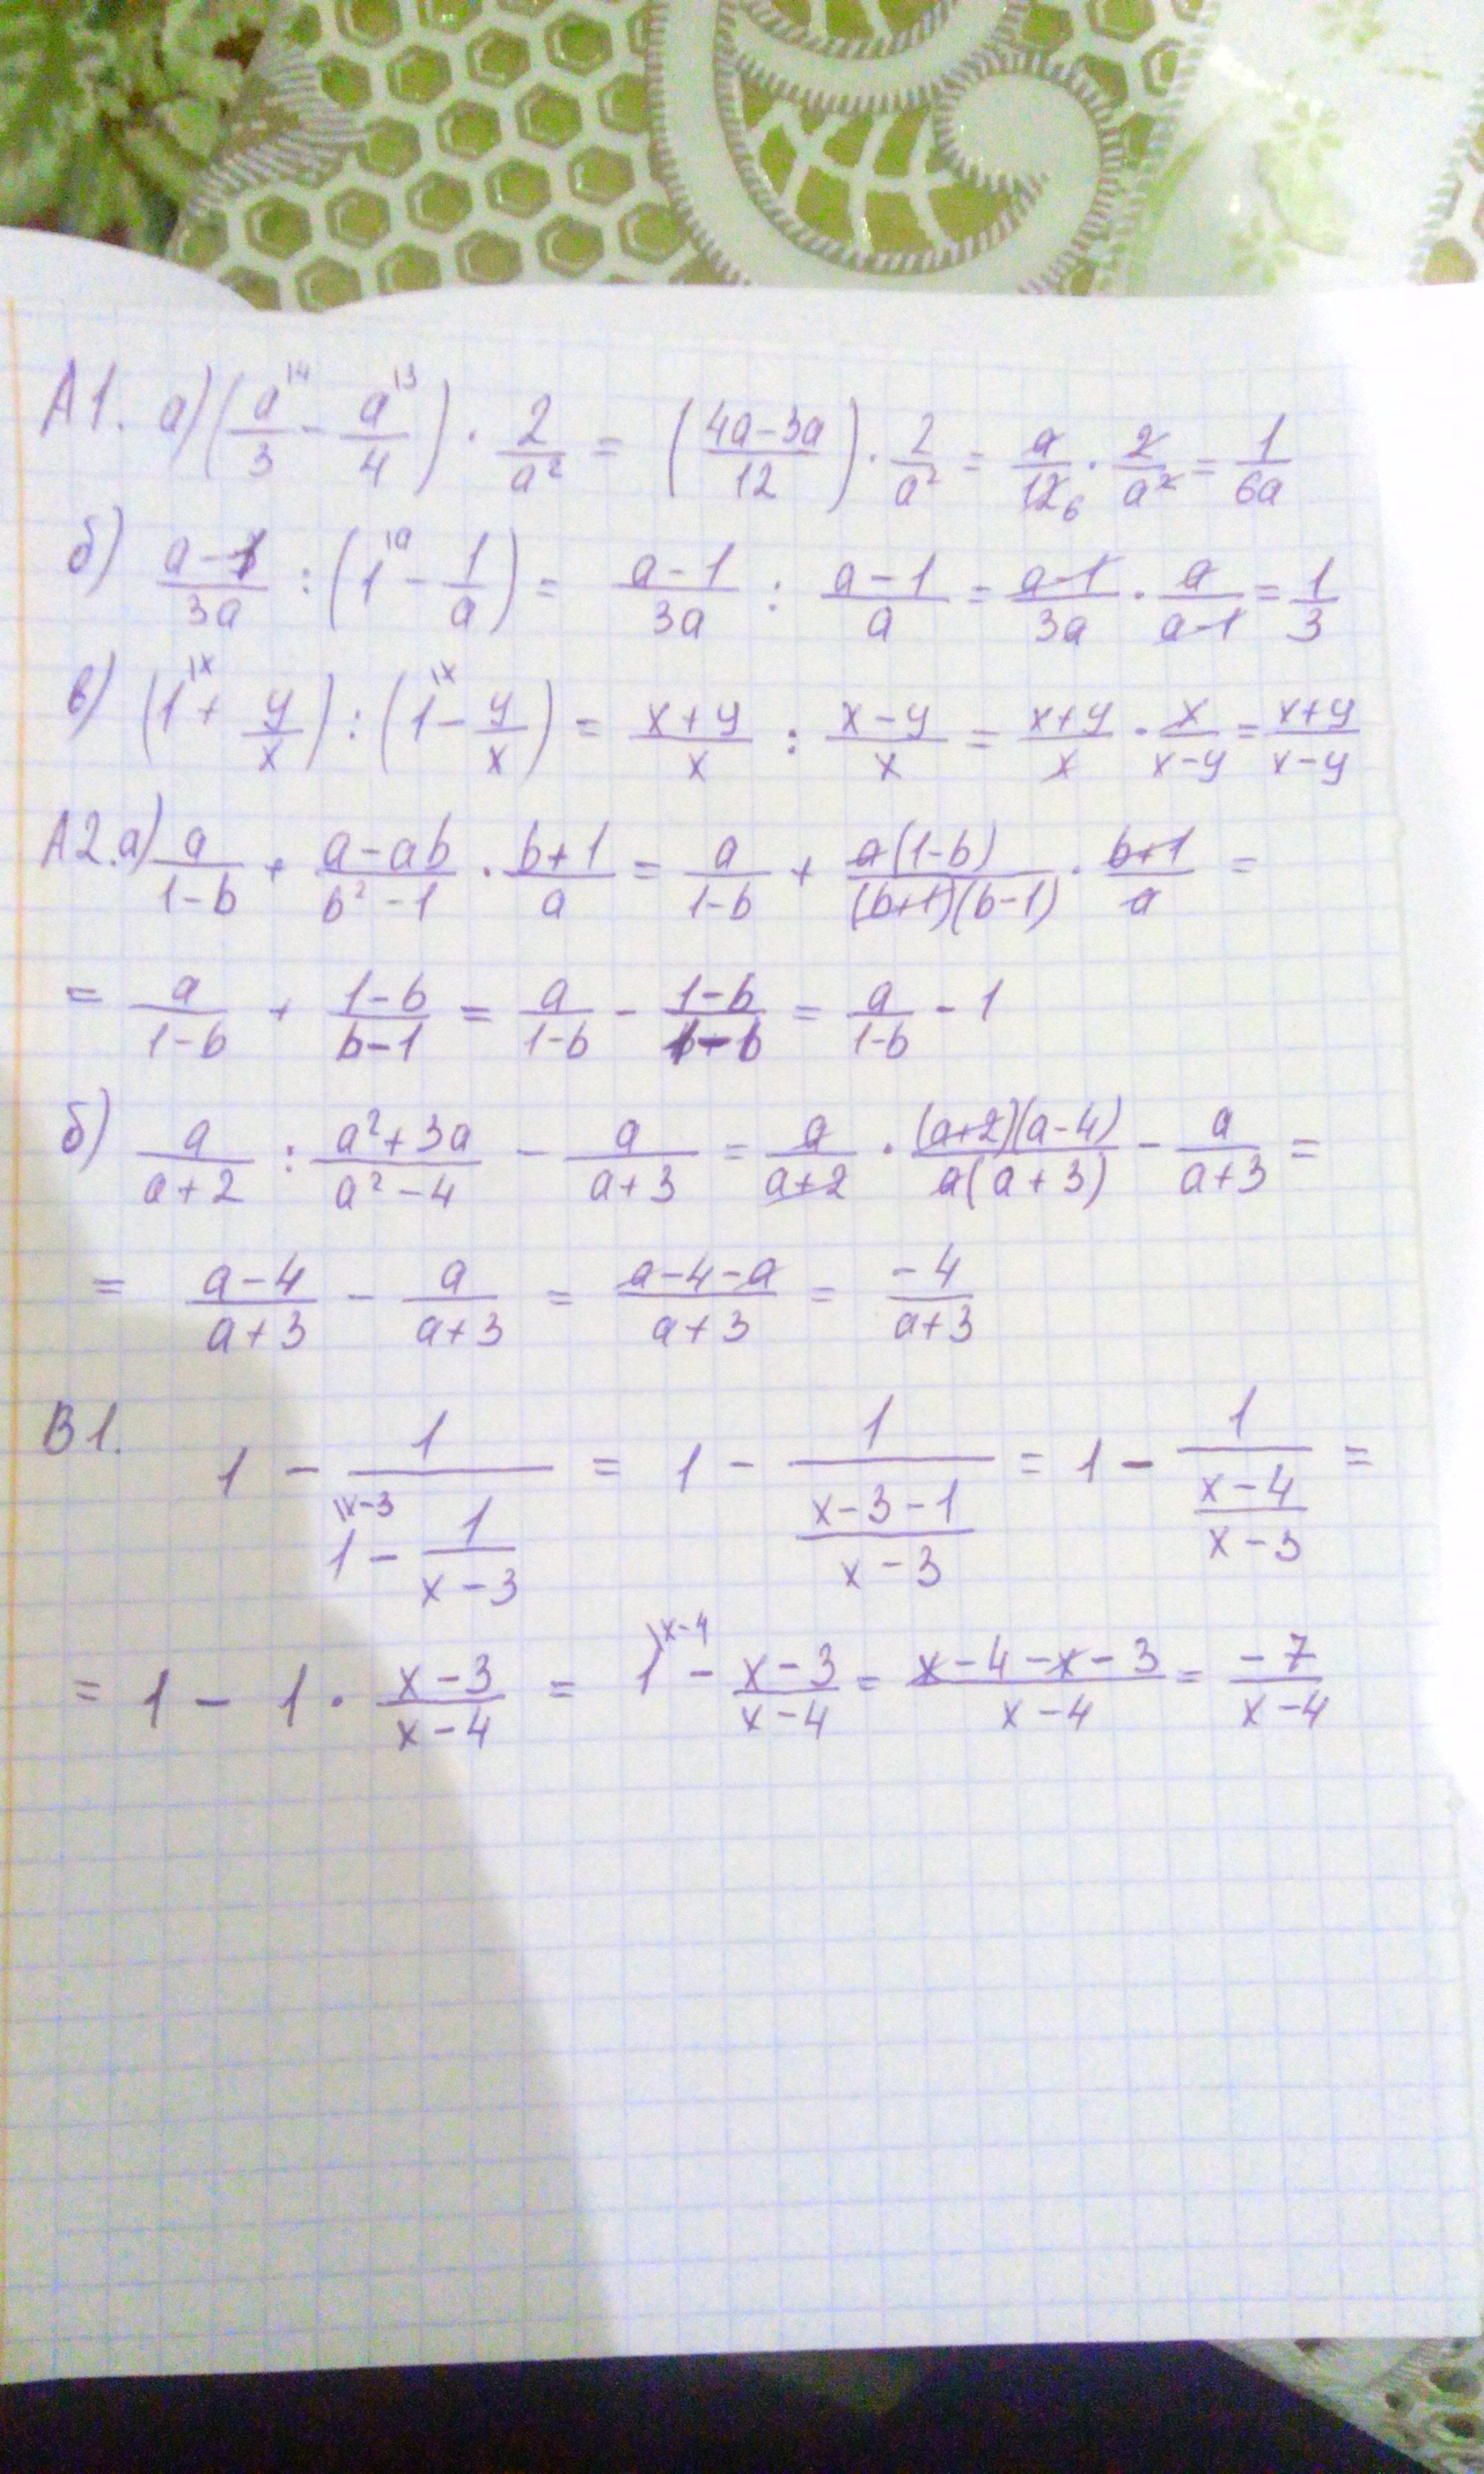 А1. а) (a/3 \4 - a/4 \3) · 2/a² = ((4a-3a)/12) · 2/a² = a/12 6 · 2/a² = 1/6a
б) (a-1)/3a : (1 \a - 1/a) = (a-1)/3a : (a-1)/a = (a-1)/3a · a/(a-1) = 1/3
в) (1 \x + y/x) : (1 \x - y/x) = (x+y)/x : (x-y)/x = (x+y)/x · x/(x-y) = (x+y)/(x-y)
А2. а) a/(1-b) + (a-ab)/(b²-1) · (b+1)/a = a/(1-b) + a(1-b)/(b+1)(b-1) · (b+1)/a =
= a/(1-b) + (1-b)/(b-1) = a/(1-b) - (1-b)/(1-b) = a/(1-b) - 1
б) a/(a+2) : (a²+3a)/(a²-4) - a/(a+3) = a/(a+2) · (a+2)(a-4)/a(a+3) - a/(a+3) =
= (a-4)/(a+3) - a/(a+3) = (a-4-a)/(a+3) = -4/(a+3)
В1. 1 - 1/(1 \x-3 - 1/(x-3)) = 1 - 1/((x-3-1)/(x-3)) = 1 - 1/((x-4)/(x-3)) =
= 1 - 1 · (x-3)/(x-4) = 1 \x-4 - (x-3)/(x-4) = (x-4-x-3)/(x-4) = -7/(x-4)